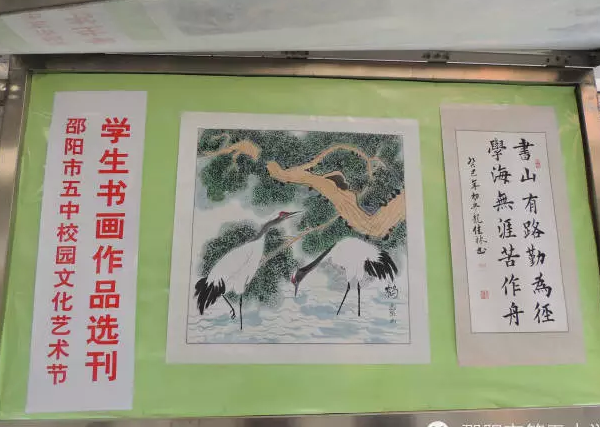 学生书画作品选刊
邵阳市五中校园文化艺术节
鹤
書山有路勤為徑
學海無涯苦作舟
癸巳年